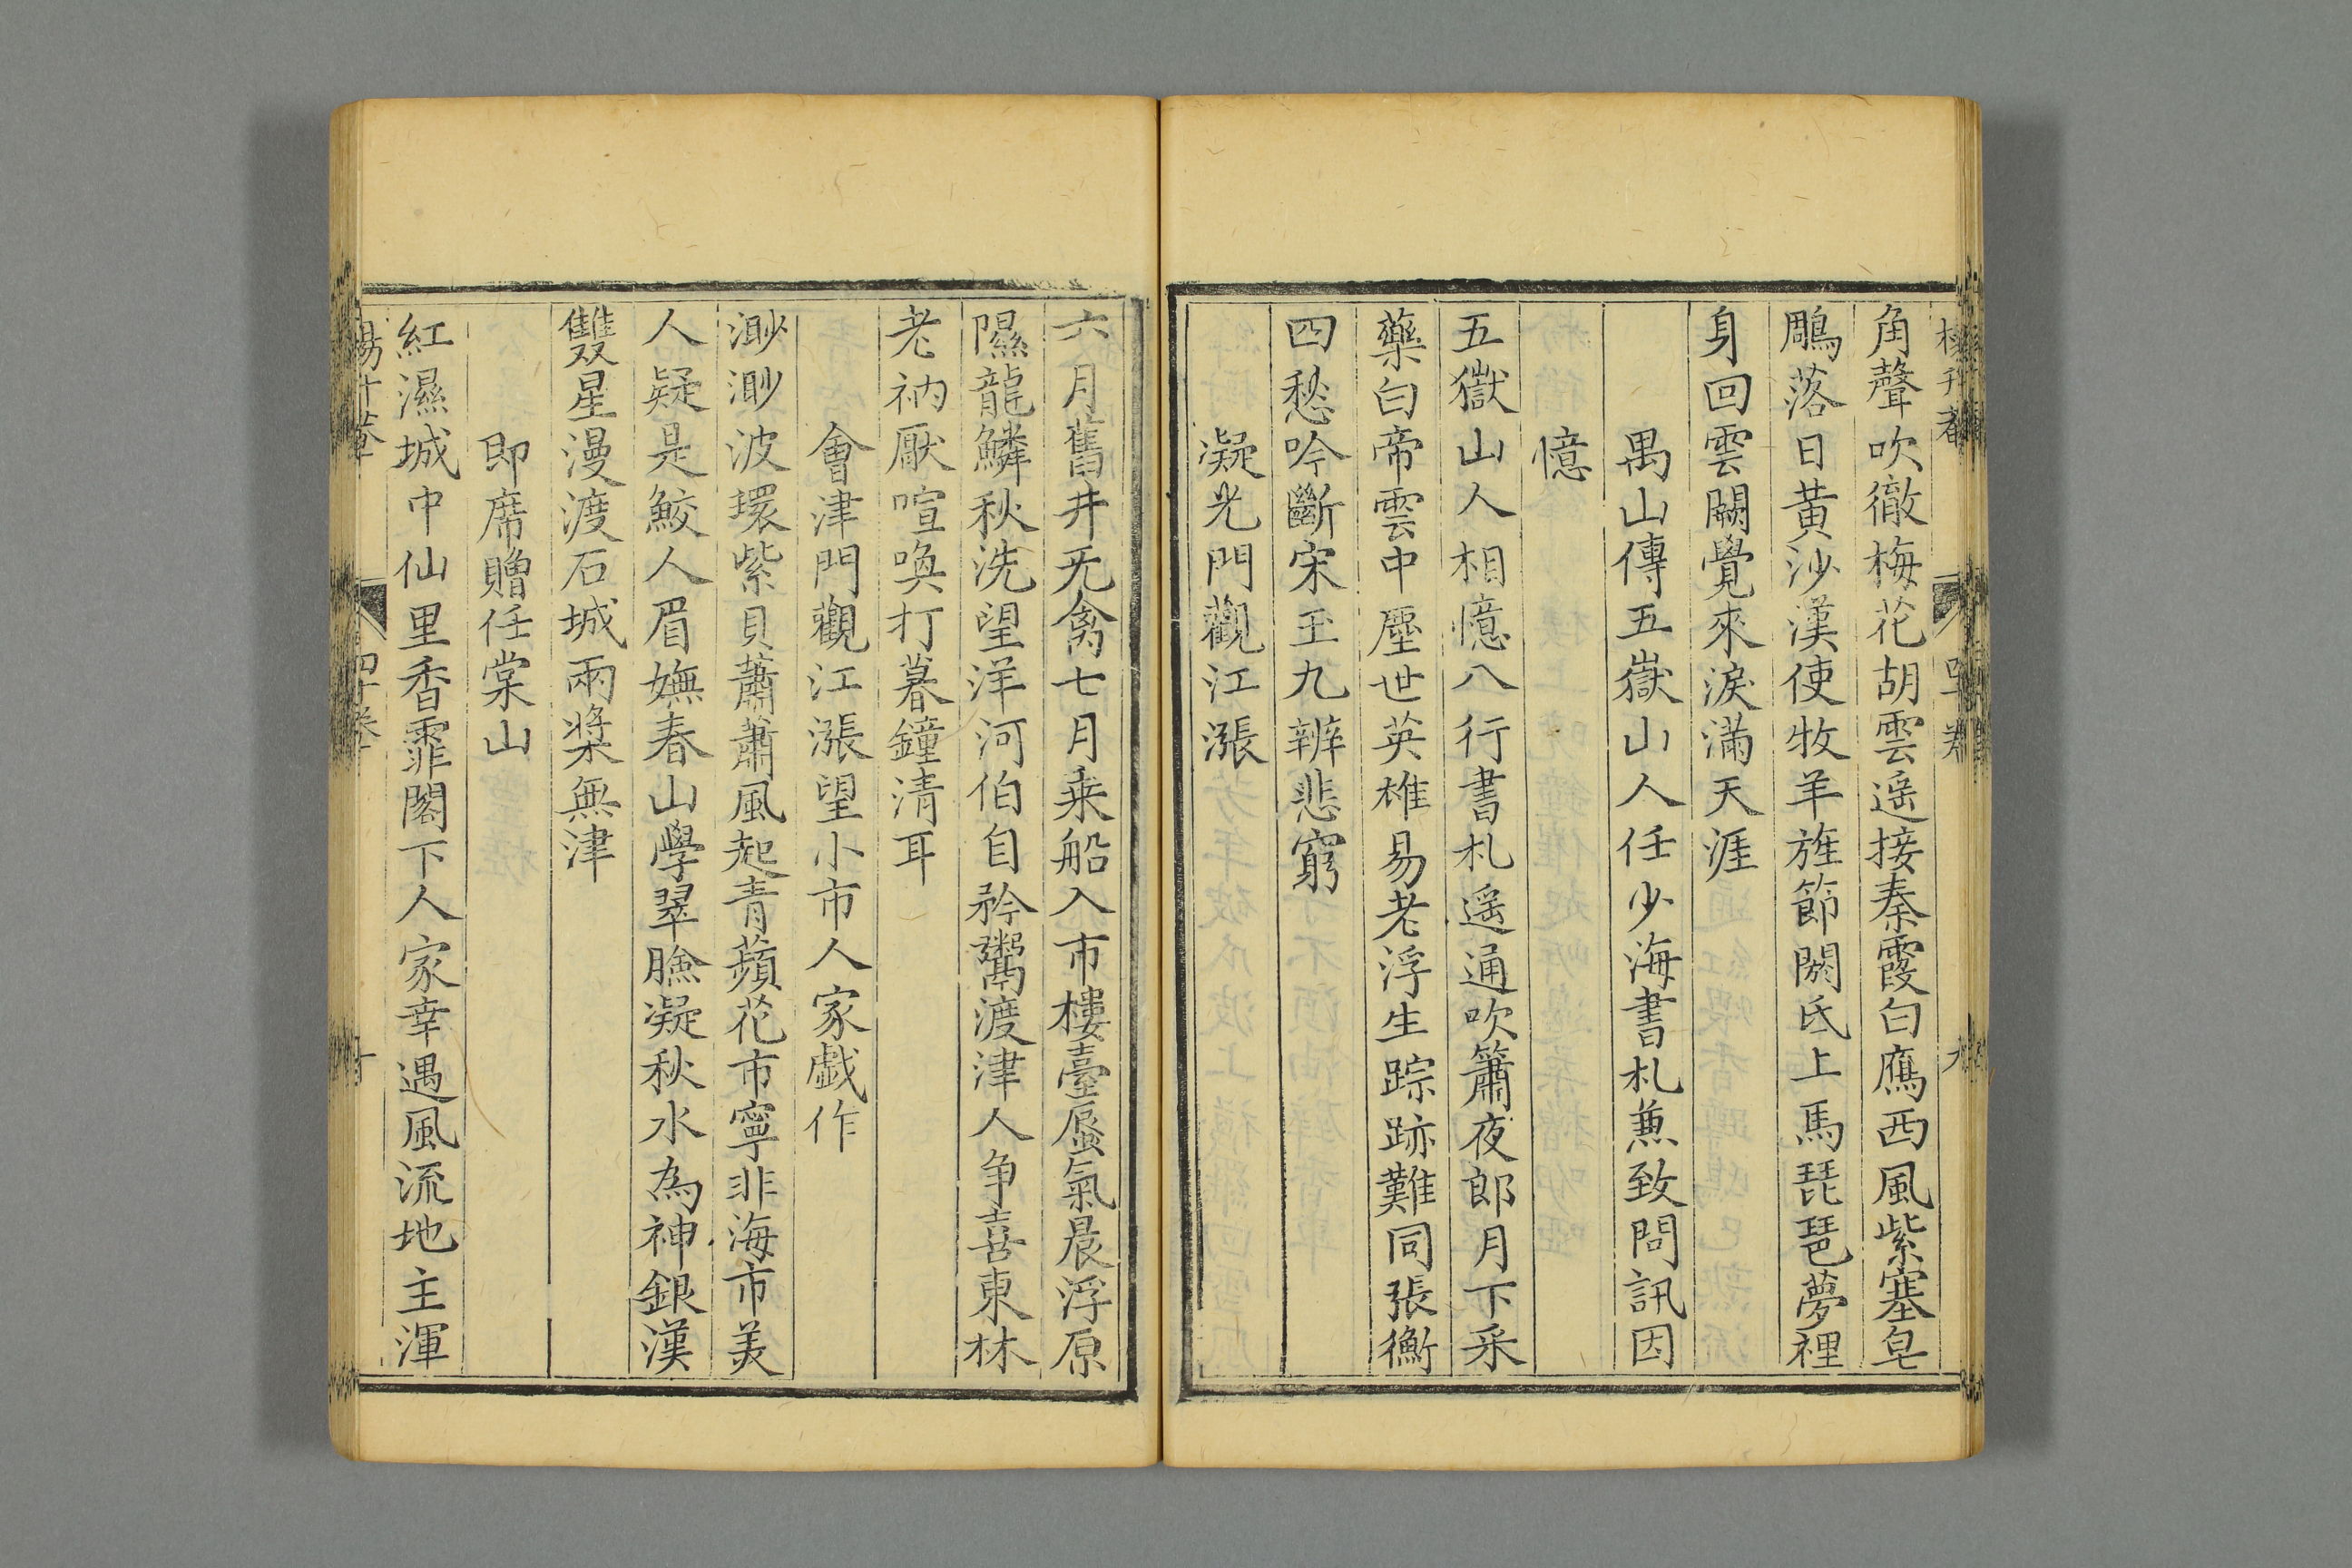 角聲吹徹梅花胡雲遥接秦霞白鴈西風紫塞皂
鵰落日黄沙漢使牧羊旌節閼氏上馬琵琶夢裡
身回雲闕覺來淚滿天涯
禺山傳五嶽山人任少海書札兼致問訊因
憶
五嶽山人相憶八行書札遥通吹簫夜郎月下采
藥白帝雲中塵世英雄易老浮生踪跡難同張衡
四愁吟斷宋玉九辨悲窮
凝光門觀江漲
六月舊井无禽七月乗船入市樓臺蜃氣晨浮原
隰龍鱗秋洗望洋河伯自矜鬻渡津人争喜東林
老衲厭喧喚打暮鐘清耳
會津門觀江漲望小市人家戯作
渺渺波環紫貝蕭蕭風起青蘋花市寧非海市美
人疑是鮫人眉嫵春山學翠臉凝秋水為神銀漢
雙星漫渡石城兩槳無津
即席贈任棠山
紅濕城中仙里香霏閣下人家幸遇風流地主渾